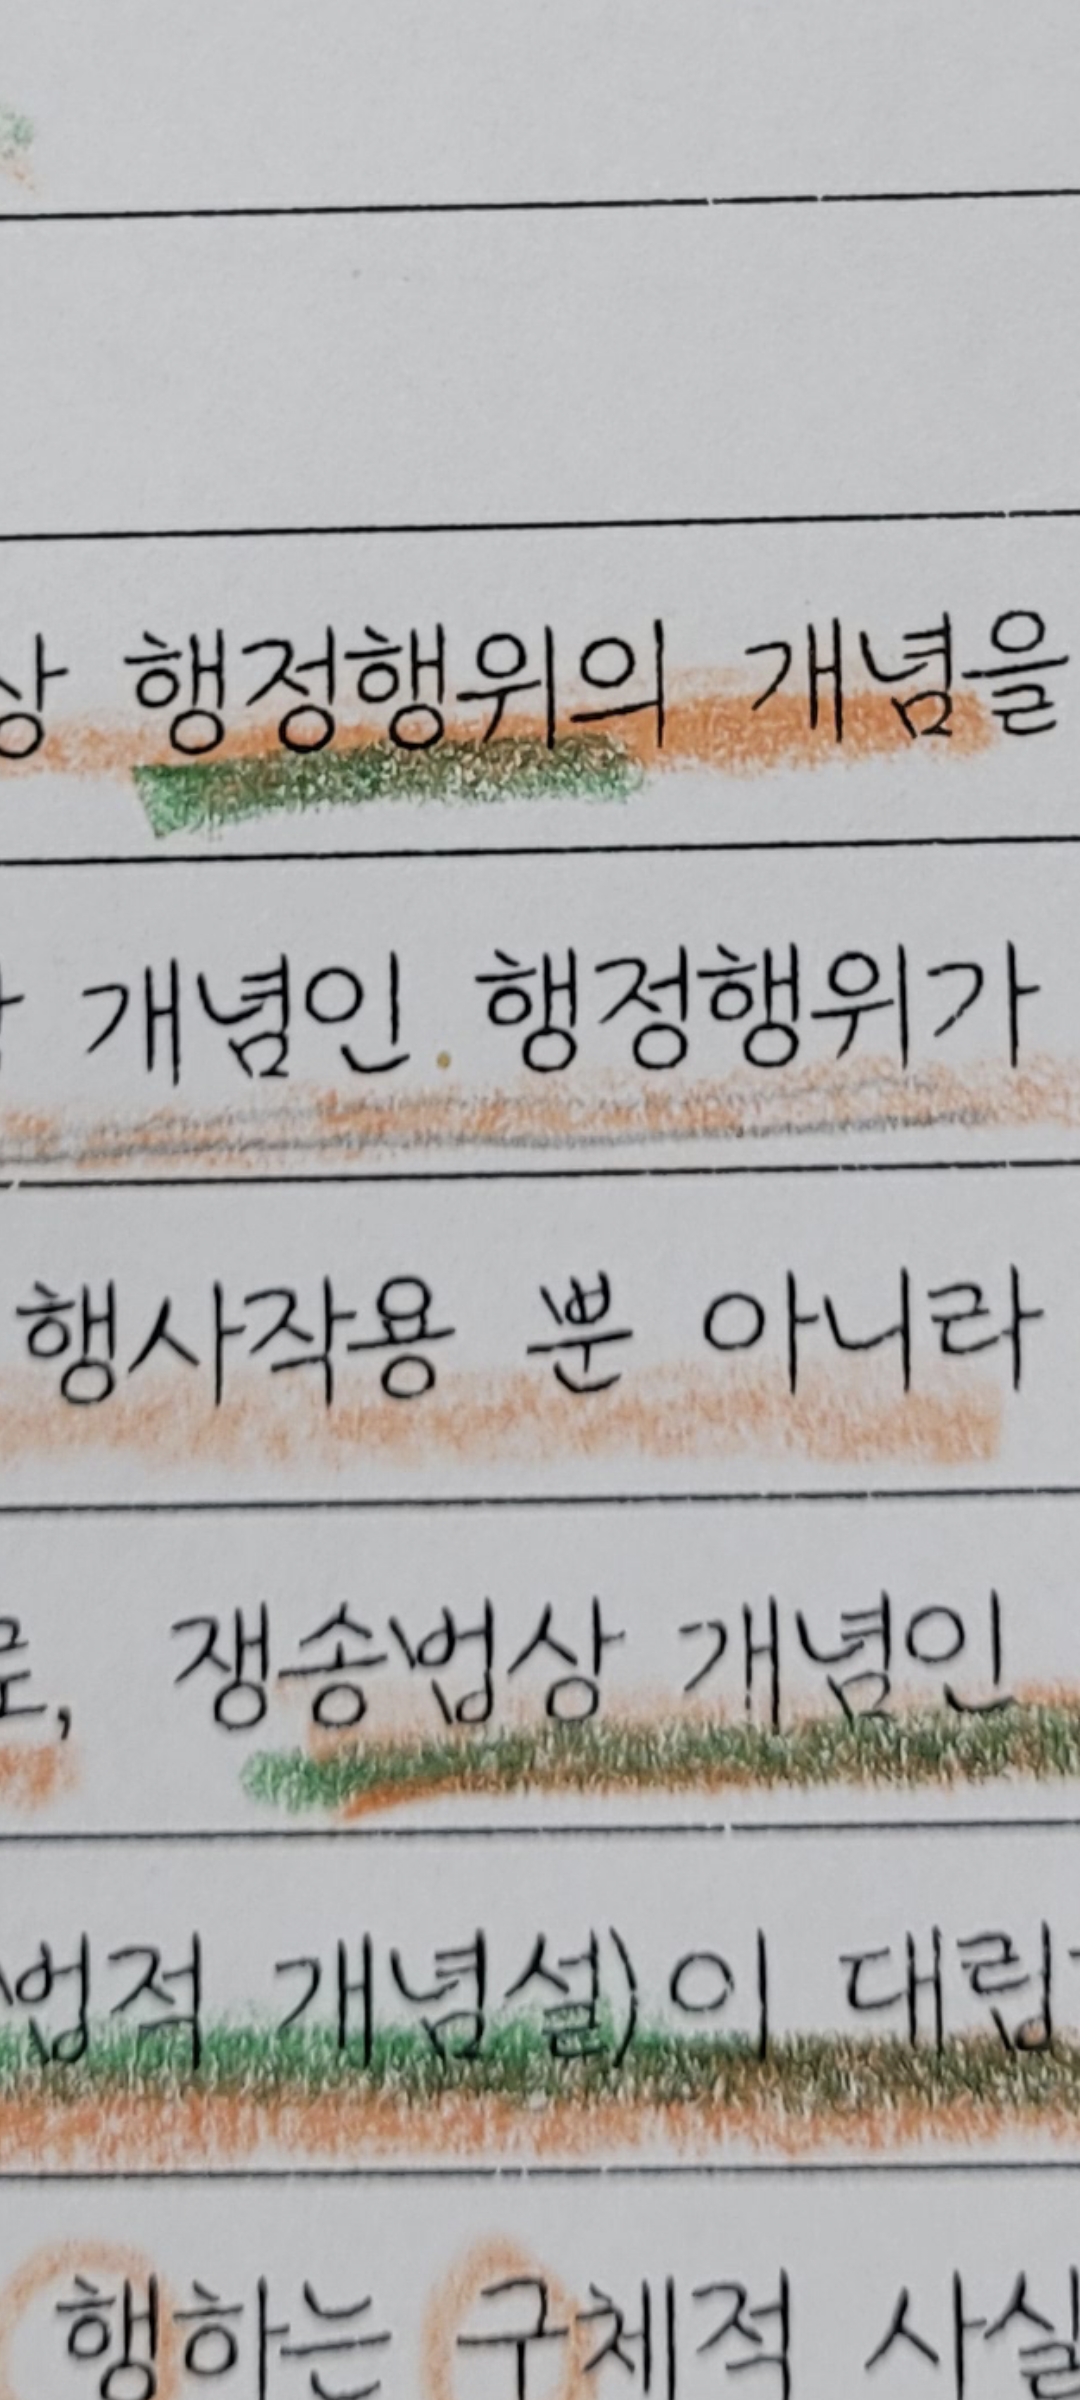 상 행정행위의 개념을
개념인 행정행위가
행사작용 뿐 아니라
쟁송법상 개념인
법적 개념설)이 대립
행하는 구체적 사실